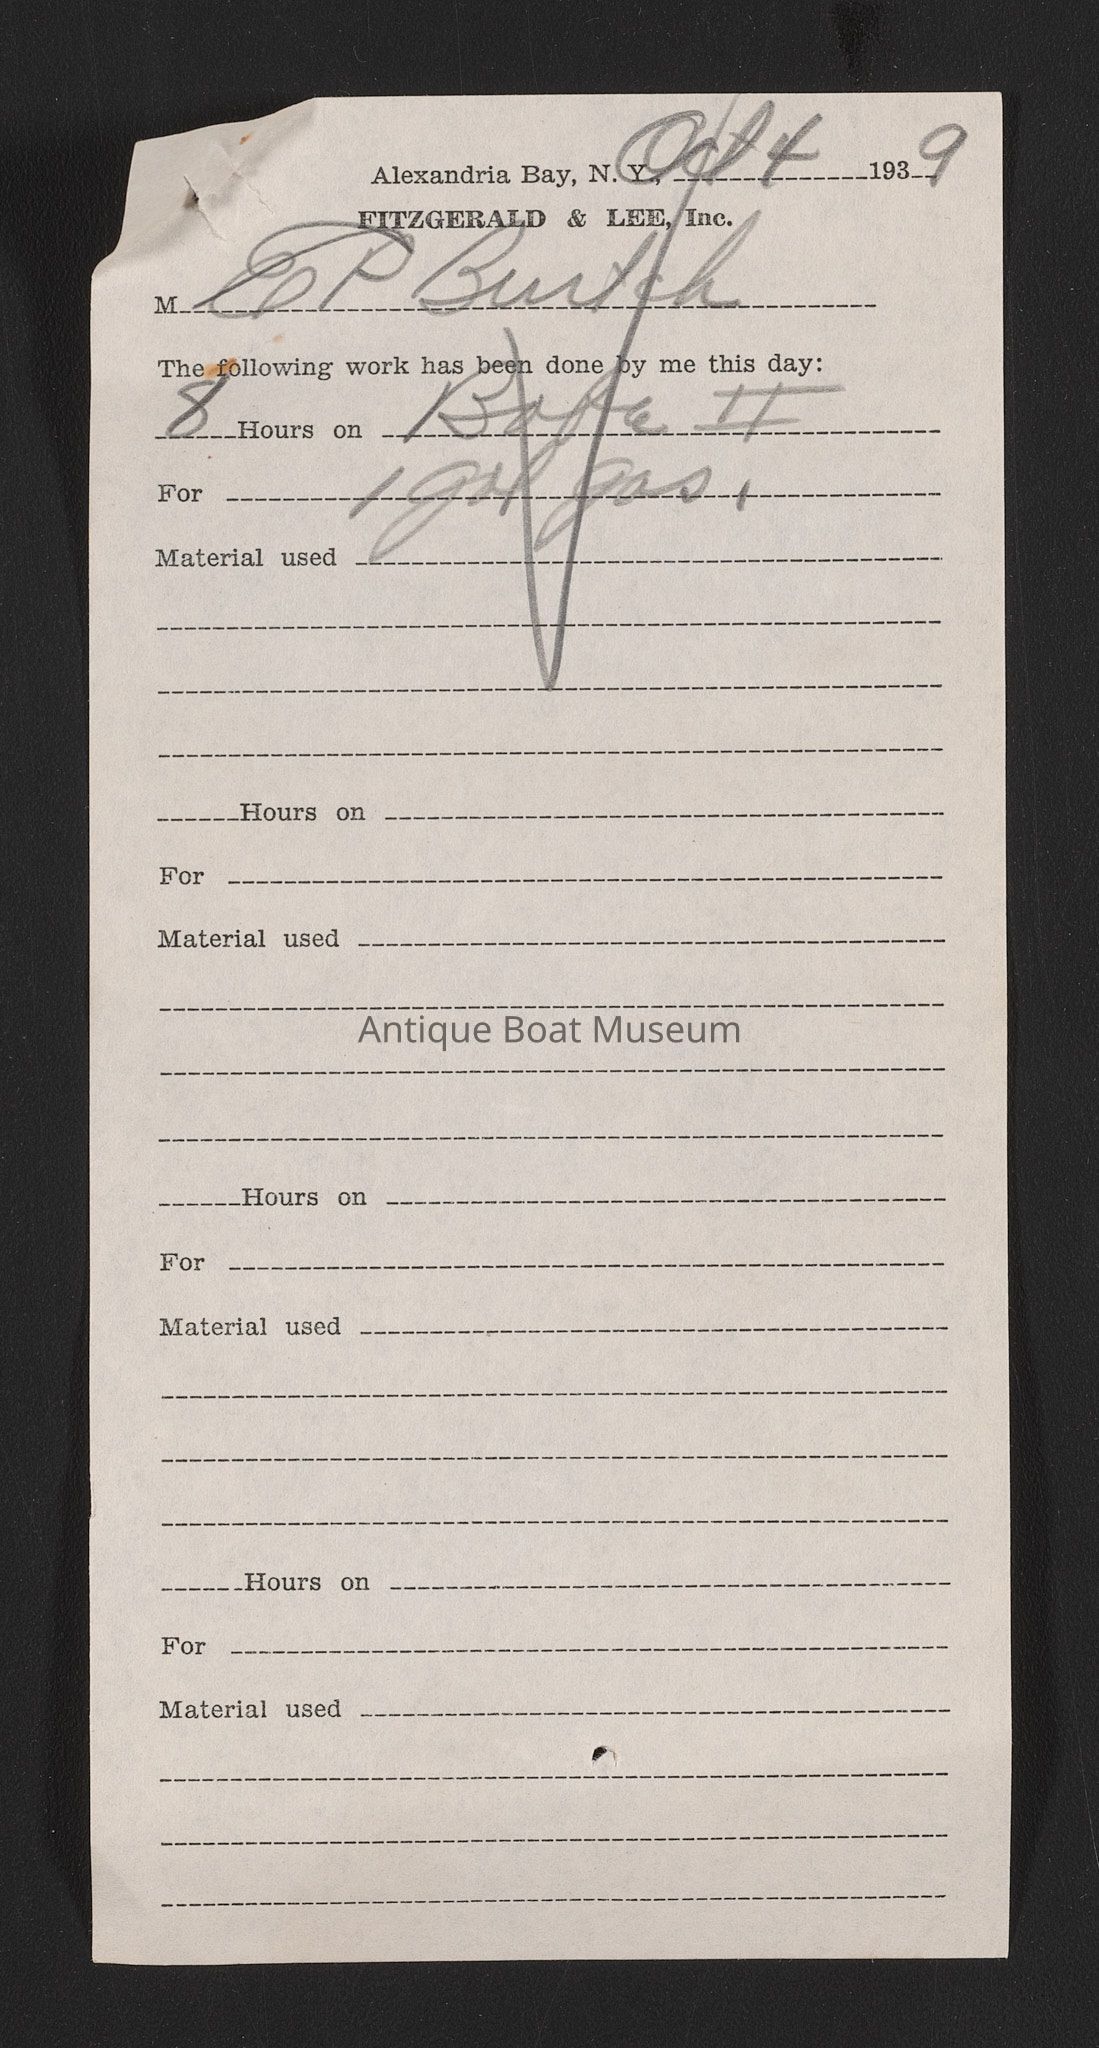 Alexandria Bay, N. Y., Oct 4 1939
FITZGERALD & LEE, Inc.
M E P Burtch
The following work has been done by me this day:
8 Hours on II
For 1 gal gas.
Material used
Hours on
For
Material used
Antique Boat Museum
Hours on
For
Material used
Hours on
For
Material used